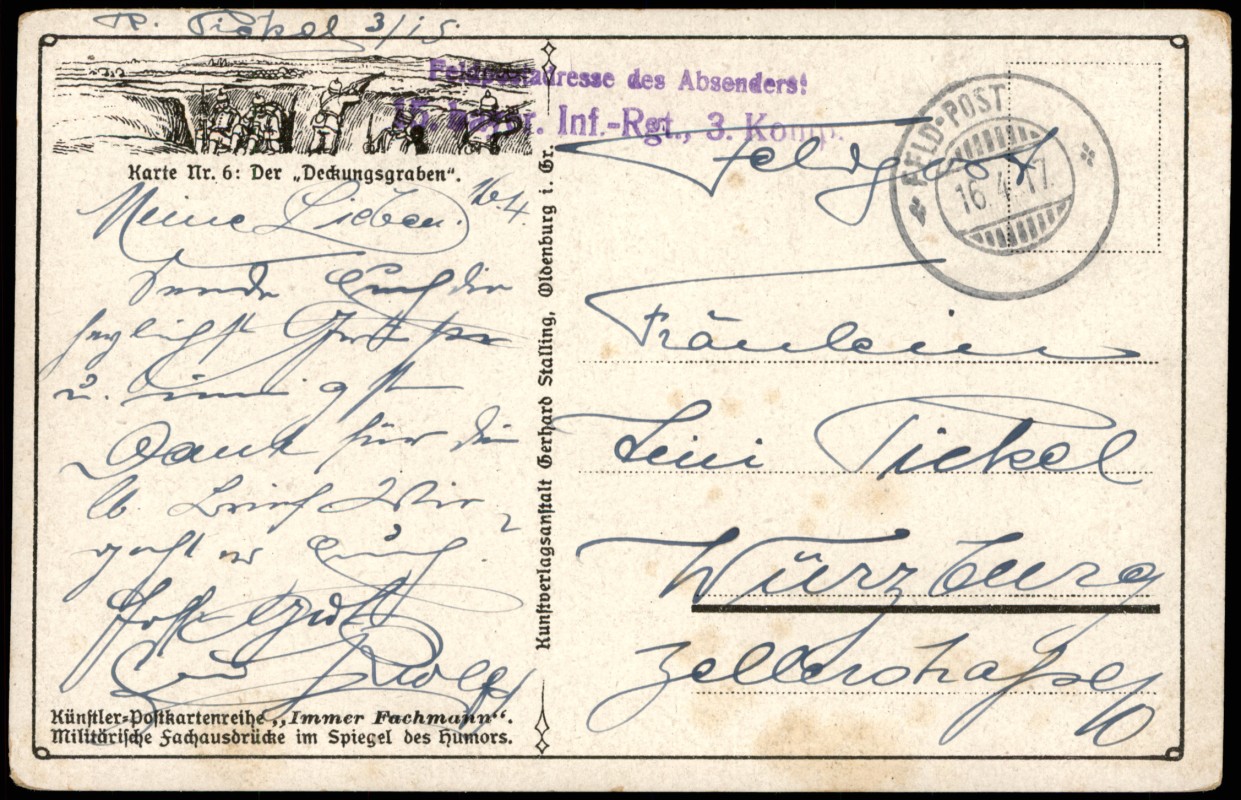 R. Pickel 3/15.
Feldpostadresse des Absenders!
15. bayer. Inf.-Rgt., 3. Komp.
Karte Nr. 6: Der „Deckungsgraben“.
Meine Lieben. 16.4.
Sende Euch die
herzlichst Grüße
u. innigst
Dank für den
lb. Brief. Wie
geht es Euch?
Euer Rudolf
Künstler-Postkartenreihe „Immer Fachmann“.
Militärische Fachausdrücke im Spiegel des Humors.
Kunstverlagsanstalt Gerhard Stalling, Oldenburg i. Gr.
FELD-POST
16.4.17
Feldpost
Fräulein
Leni Pickel
Würzburg
Zellerstraße